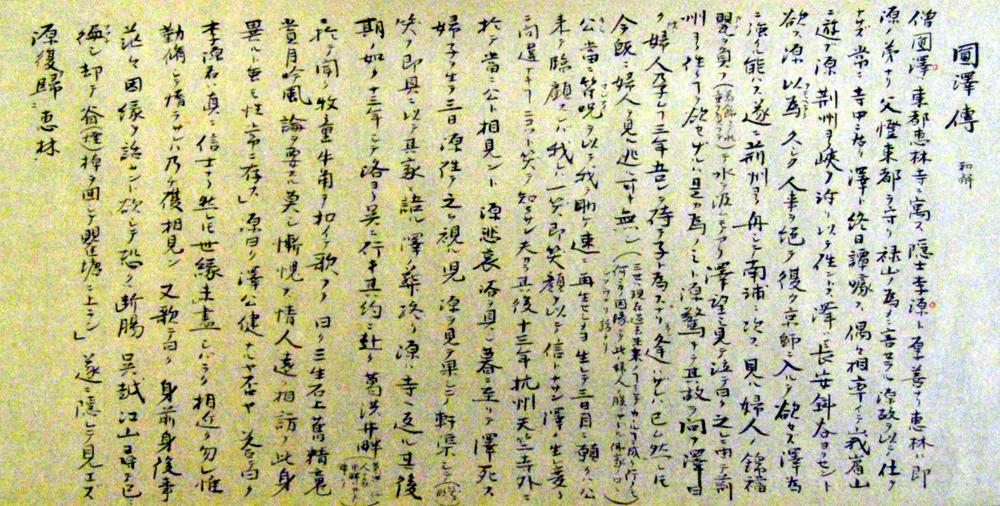 圓澤傳 和解
僧圓澤東都惠林寺ニ寓ス隠士李源ト厚善ナリ惠林ハ即
源ノ弟ナリ父憕東都ヲ守リ禄山ノ為メニ害セラル源故ヲ以テ仕ヘ
ナズ常ニ寺中ニ在リ澤ト終日譚噱ス偶々相率イテ峨眉山
ニ遊フ源荆州ヨリ峽ヲ泝リ以テ徃ントス澤ハ長安斜谷ヨリセント
欲ス源以為ク久ク人事ヲ絶ツ復タ京師ニ入ルヲ欲セス澤為
ニ強ル能ス遂ニ荆州ヨリ舟シテ南浦ニ次ス見ル婦人ノ錦襠
甖ヲ負フテ水ヲ汲ムモノアリ澤望ミ見テ泣テ曰ク之ニ由テ前
州ヨリ徃クヲ欲セザルハ是カ為ノミト源驚テ其故ヲ問フ澤曰
ク婦人孕ム三年吾ヲ待チ子ト為スナリ逢ハザレハ已ム然レ
今既ニ婦人ヲ見逃ル可キ無シ(三世現在過去未来 何ラノ因縁ニ此ノ婦人ノ腹
公當ニ符呪ヲ以テ我ヲ助ケ速ニ再生セシメヨ生レテ三日目ニ願クハ公
来テ臨顧 我レ一笑即笑顔ヲ以テ信トナサン澤ノ生
ニ向 笑ヲ知ラサン 夫ヨリ其後十三年杭州天竺寺外ニ
於テ當ニ公ト相見ント源悲哀 具ニ暮ニ至リテ澤死ス
婦子ヲ生ム三日源徃テ之ヲ視ル児源ヲ見テ果シテ軒渠シテ
笑フ即具ニ以テ其家ニ語ル澤ヲ葬終リ源ハ寺ニ返ル其後
期ノ如ク十三年ニシテ洛ヨリ呉ニ行キ其約ニ赴ク葛洪井畔
ニ於テ聞ク牧童牛角ヲ扣イテ歌フテ曰ク三生石上舊精魂
賞月吟風論スルヲ要スル莫シ慚愧ス情人遠ク相訪フ此身
異ルト雖モ性常ニ存ス」源曰ク澤公健ナルヤ否ヤ 答曰ク
李源君ハ真ニ信士ナリ然レ世縁未盡シバラク相近ク勿レ惟
勤脩シテ惰ラサレハ乃チ復相見ン 又歌テ曰ク 身前身後事
茫々因縁ヲ語ラント欲シテ恐クハ断腸 呉越江山尋已ニ
徧シ却テ㷌(煙)棹ヲ回シテ瞿塘ニ上ラン」遂ニ隠レテ見エズ
源復歸ニ惠林